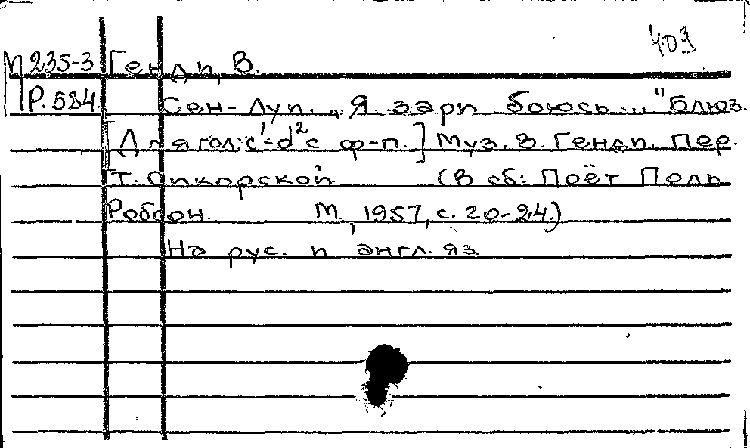 403
М 235-3 Генди, В.
Р. 584 Сен-Луи. „Я зари боюсь..." Блюз.
[Для гол. c¹-d² с ф-п.] Муз. В. Генди. Пер.
Т. Сикорской (В сб: Поёт Поль
Робсон М., 1957, с. 20-24.)
На рус. и англ. яз.